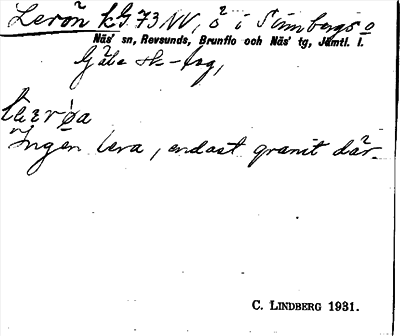 Lerön kG. 73 NV, ö i Simbergs o
Näs' sn, Revsunds, Brunflo och Näs' tg, Jämtl. l.
Gäle sk-lag,
lærøa
"Ingen lera, endast granit där.
C. LINDBERG 1931.